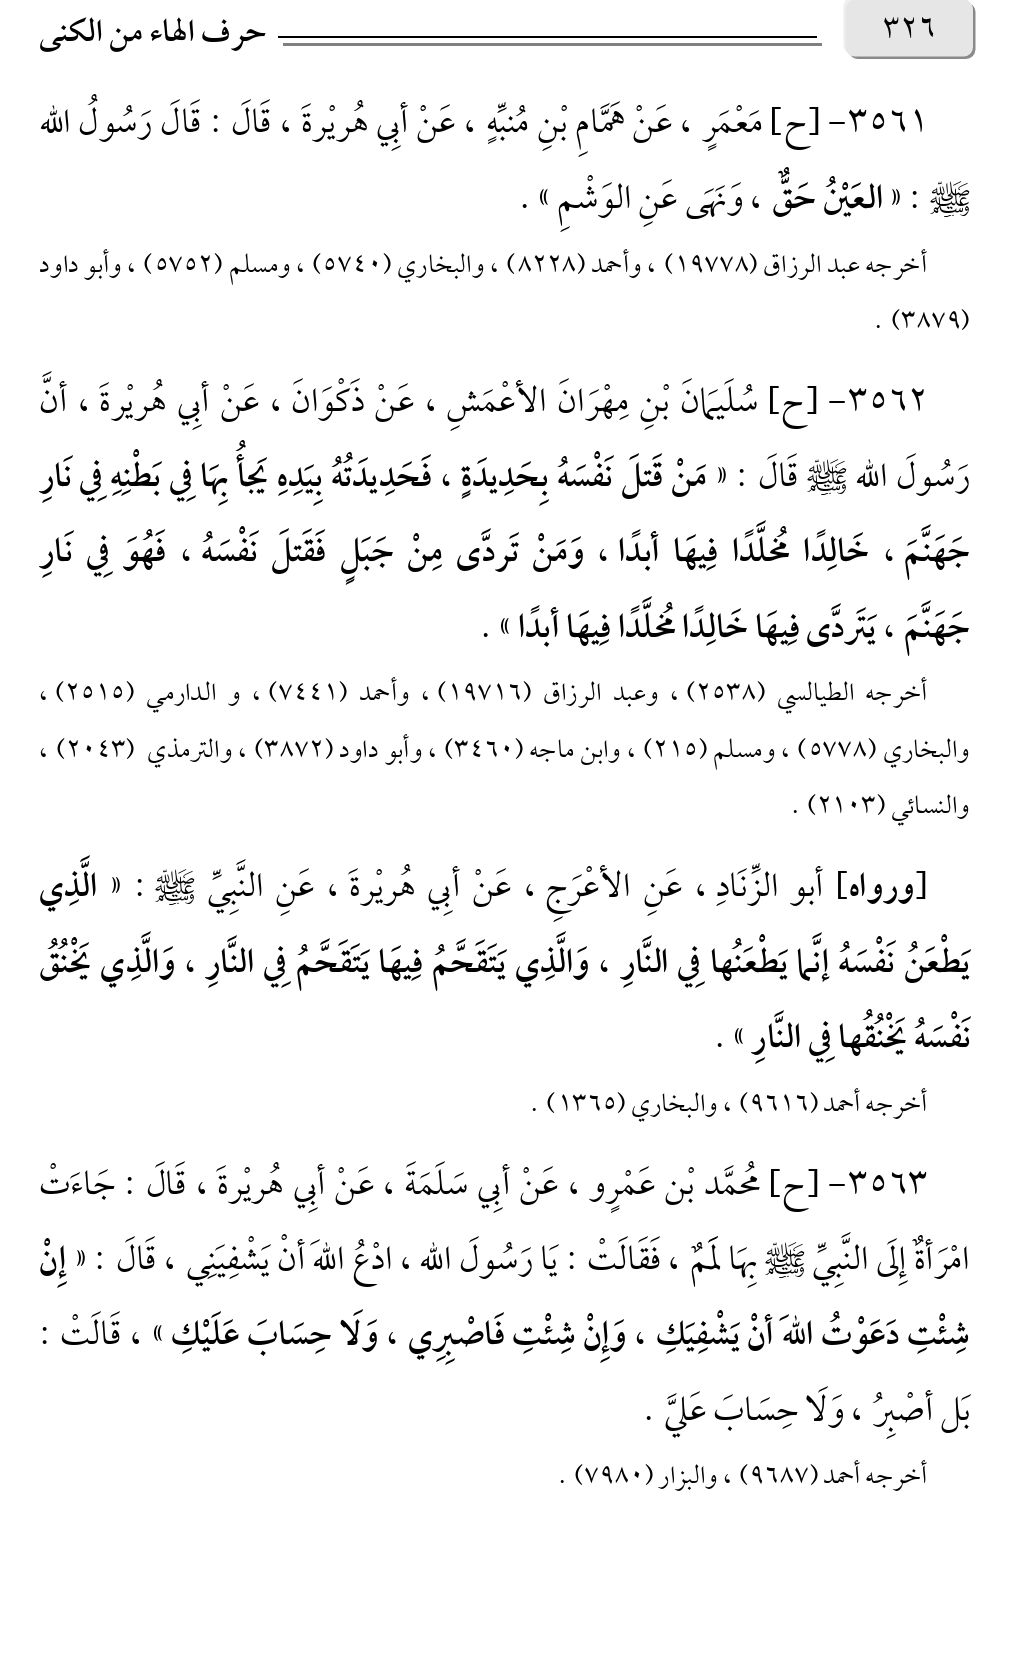 ٣٢٦ حرف الهاء من الكنى
٣٥٦١- [ح] مَعْمَرٍ ، عَنْ هَمَّامِ بْنِ مُنبِّهٍ ، عَنْ أبِي هُريْرةَ ، قَالَ : قَالَ رَسُولُ الله
ﷺ : « العَيْنُ حَقٌّ ، وَنَهَى عَنِ الوَشْمِ » .
أخرجه عبد الرزاق (١٩٧٧٨) ، وأحمد (٨٢٢٨) ، والبخاري (٥٧٤٠) ، ومسلم (٥٧٥٢) ، وأبو داود
(٣٨٧٩) .
٣٥٦٢- [ح] سُلَيمَانَ بْنِ مِهْرَانَ الأعْمَشِ ، عَنْ ذَكْوَانَ ، عَنْ أبِي هُريْرةَ ، أنَّ
رَسُولَ الله ﷺ قَالَ : « مَنْ قَتلَ نَفْسَهُ بِحَدِيدَةٍ ، فَحَدِيدَتُهُ بِيَدِهِ يَجأُ بِهَا فِي بَطْنِهِ فِي نَارِ
جَهَنَّمَ ، خَالِدًا مُخلَّدًا فِيهَا أبدًا ، وَمَنْ تَردَّى مِنْ جَبَلٍ فَقَتلَ نَفْسَهُ ، فَهُوَ فِي نَارِ
جَهَنَّمَ ، يَتَردَّى فِيهَا خَالِدًا مُخلَّدًا فِيهَا أبدًا » .
أخرجه الطيالسي (٢٥٣٨) ، وعبد الرزاق (١٩٧١٦) ، وأحمد (٧٤٤١) ، و الدارمي (٢٥١٥) ،
والبخاري (٥٧٧٨) ، ومسلم (٢١٥) ، وابن ماجه (٣٤٦٠) ، وأبو داود (٣٨٧٢) ، والترمذي (٢٠٤٣) ،
والنسائي (٢١٠٣) .
[ورواه] أبو الزِّنَادِ ، عَنِ الأعْرَجِ ، عَنْ أبِي هُريْرةَ ، عَنِ النَّبِيِّ ﷺ : « الَّذِي
يَطْعَنُ نَفْسَهُ إنَّما يَطْعَنُها فِي النَّارِ ، وَالَّذِي يَتَقَحَّمُ فِيهَا يَتَقَحَّمُ فِي النَّارِ ، وَالَّذِي يَخْنُقُ
نَفْسَهُ يَخْنُقُها فِي النَّارِ » .
أخرجه أحمد (٩٦١٦) ، والبخاري (١٣٦٥) .
٣٥٦٣- [ح] مُحمَّد بْن عَمْرٍو ، عَنْ أبِي سَلَمَةَ ، عَنْ أبِي هُريْرةَ ، قَالَ : جَاءَتْ
امْرَأةٌ إِلَى النَّبِيِّ ﷺ بِهَا لَمَمٌ ، فَقَالَتْ : يَا رَسُولَ الله ، ادْعُ اللهَ أنْ يَشْفِيَنِي ، قَالَ : « إِنْ
شِئْتِ دَعَوْتُ اللهَ أنْ يَشْفِيَكِ ، وَإِنْ شِئْتِ فَاصْبِرِي ، وَلَا حِسَابَ عَلَيْكِ » ، قَالَتْ :
بَل أصْبِرُ ، وَلَا حِسَابَ عَليَّ .
أخرجه أحمد (٩٦٨٧) ، والبزار (٧٩٨٠) .